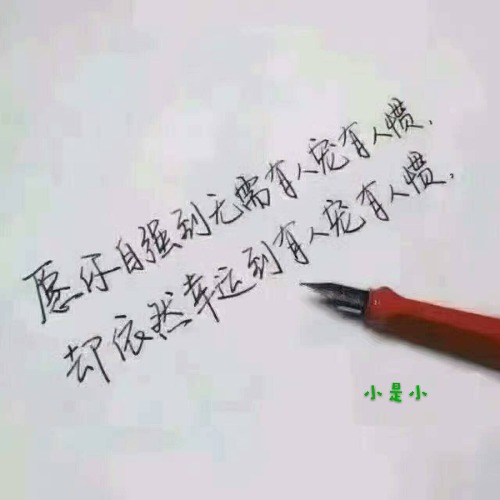 愿你自强到无需有人宠有人惯，
却依然幸运到有人宠有人惯，
小是小